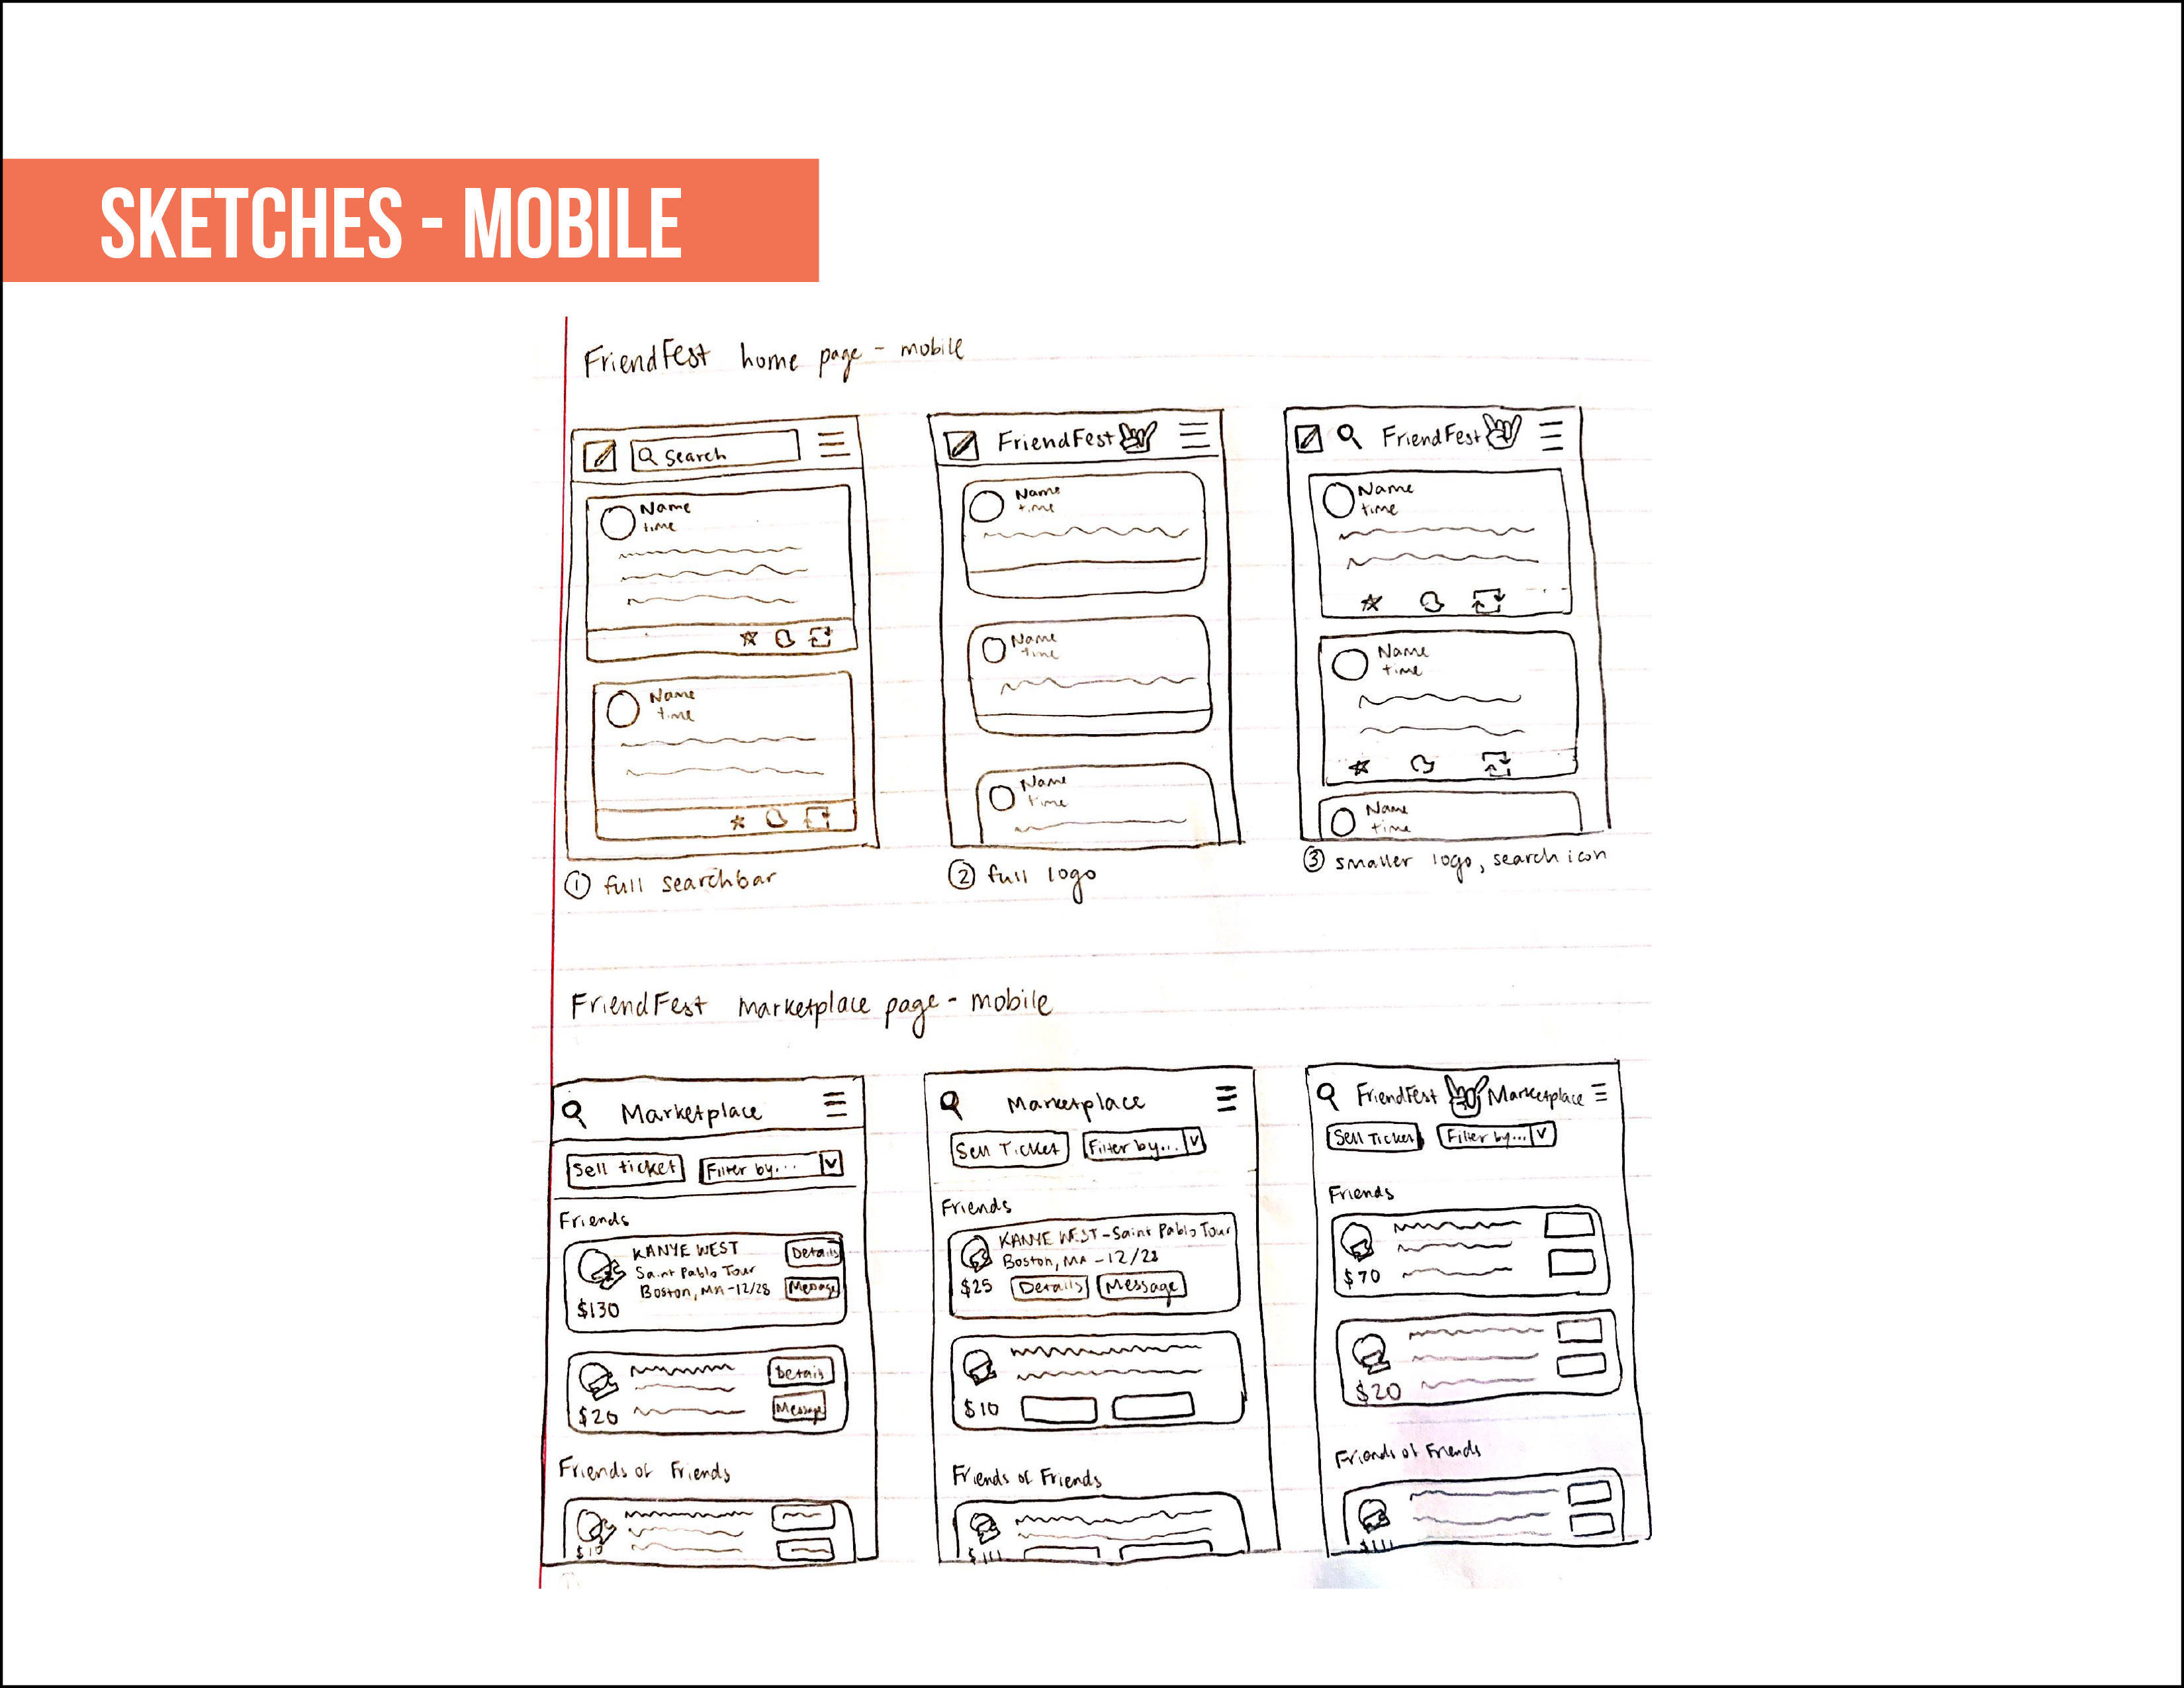 SKETCHES - MOBILE
FriendFest home page - mobile
Search
Name
time
Name
time
① full searchbar
FriendFest
Name
time
Name
time
Name
time
② full logo
FriendFest
Name
time
Name
time
Name
time
③ smaller logo, search icon
FriendFest marketplace page - mobile
Marketplace
Sell ticket Filter by...
Friends
KANYE WEST
Saint Pablo Tour
Boston, MA - 12/28
$130
Details
Message
$20
Details
Message
Friends of Friends
Marketplace
Sell Ticket Filter by...
Friends
KANYE WEST - Saint Pablo Tour
Boston, MA - 12/28
$25 Details Message
$10
Friends of Friends
FriendFest Marketplace
Sell Ticket Filter by...
Friends
$70
$20
Friends of Friends